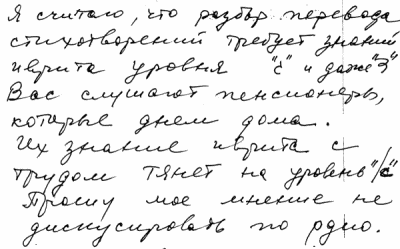 Я считаю, что разбор перевода
стихотворений требует знаний
иврита уровня "ג" и даже "ד"
Вас слушают пенсионеры,
которые днем дома.
Их знание иврита с
трудом тянет на уровень
Прошу мое мнение не
дискусировать по радио.